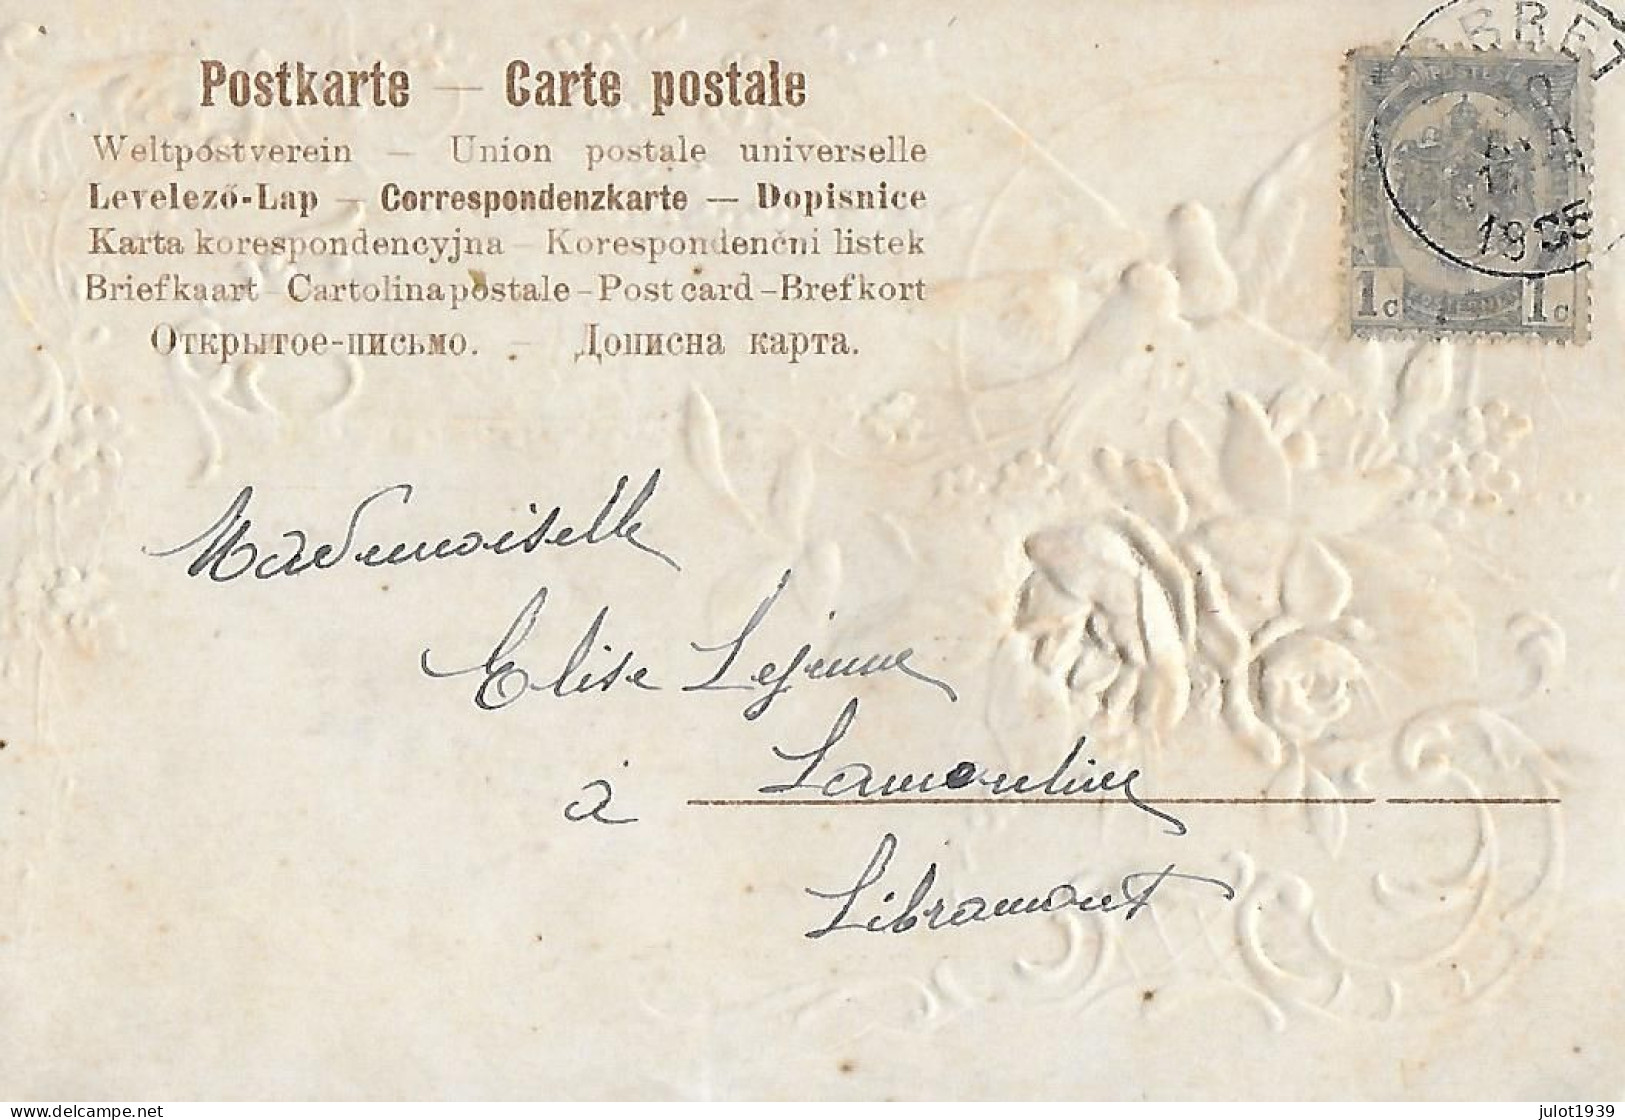 Postkarte — Carte postale
Weltpostverein — Union postale universelle
Levelező-Lap — Correspondenzkarte — Dopisnice
Karta korespondencyjna — Korespondenčni listek
Briefkaart — Cartolina postale — Post card — Brefkort
Открытое-письмо. — Дописна карта.
1905
1c 1c
Mademoiselle
Elise Lejeune
à Lamouline
Libramont
Delcampe.net
julot1939